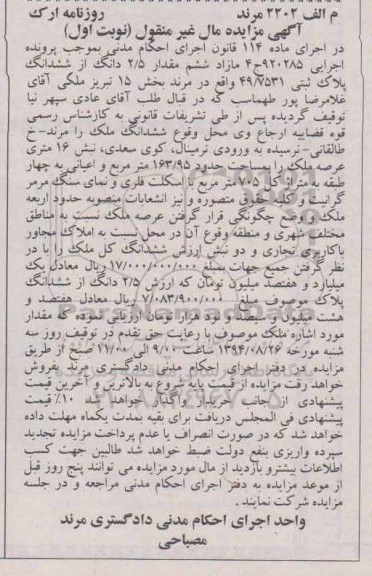 م الف ۲۲۰۲ مرند روزنامه ارک
آگهی مزایده مال غیر منقول (نوبت اول)
در اجرای ماده ۱۱۴ قانون اجرای احکام مدنی بموجب پرونده
اجرایی ۹۲۰۲۸۵ج۴ مازاد ششم مقدار ۲/۵ دانگ از ششدانگ
پلاک ثبتی ۴۹/۷۵۳۱ واقع در مرند بخش ۱۵ تبریز ملکی آقای
غلامرضا پور طهماسب که در قبال طلب آقای عادی سپهر نیا
توقیف گردیده پس از طی تشریفات قانونی به کارشناس رسمی
قوه قضاییه ارجاع وی محل وقوع ششدانگ ملک را مرند-خ
طالقانی- نرسیده به ورودی ترمینال، کوی سعدی، نبش ۱۶ متری
عرصه ملک را بمساحت حدود ۱۶۳/۹۵ متر مربع و اعیانی به چهار
طبقه به متراژ کل ۷۰۵ متر مربع با اسکلت فلزی و نمای سنگ مرمر
گرانیت و کلیه حقوق متصوره و نیز انشعابات منصوبه حدود اربعه
ملک و وضع چگونگی قرار گرفتن عرصه ملک نسبت به مناطق
مختلف شهری و منطقه وقوع آن در محل نسبت به املاک مجاور
باکاربری تجاری و دو نبش ارزش ششدانگ کل ملک را با در
نظر گرفتن جمیع جهات بمبلغ ۱۷/۰۰۰/۰۰۰/۰۰۰ ریال معادل یک
میلیارد و هفتصد میلیون تومان که ارزش ۲/۵ دانگ از ششدانگ
پلاک موصوف مبلغ ۷/۰۸۳/۹۰۰/۰۰۰ ریال معادل هفتصد و
هشت میلیون و سیصد و نود هزار تومان ارزیابی نموده که مقدار
مورد اشاره ملک موصوف با رعایت حق تقدم در توقیف روز سه
شنبه مورخه ۱۳۹۴/۰۸/۲۶ ساعت ۹/۰۰ الی ۱۱/۰۰ صبح از طریق
مزایده در دفتر اجرای احکام مدنی دادگستری مرند بفروش
خواهد رفت مزایده از قیمت پایه شروع به بالاترین و آخرین قیمت
پیشنهادی از جانب خریدار واگذار خواهد شد ۱۰٪ قیمت
پیشنهادی فی المجلس دریافت برای بقیه بمدت یکماه مهلت داده
خواهد شد که در صورت انصراف یا عدم پرداخت مزایده تجدید
سپرده واریزی بنفع دولت ضبط خواهد شد طالبین جهت کسب
اطلاعات بیشترو بازدید از مال مورد مزایده می توانند پنج روز قبل
از موعد مزایده به دفتر اجرای احکام مدنی مراجعه و در جلسه
مزایده شرکت نمایند.
واحد اجرای احکام مدنی دادگستری مرند
مصباحی